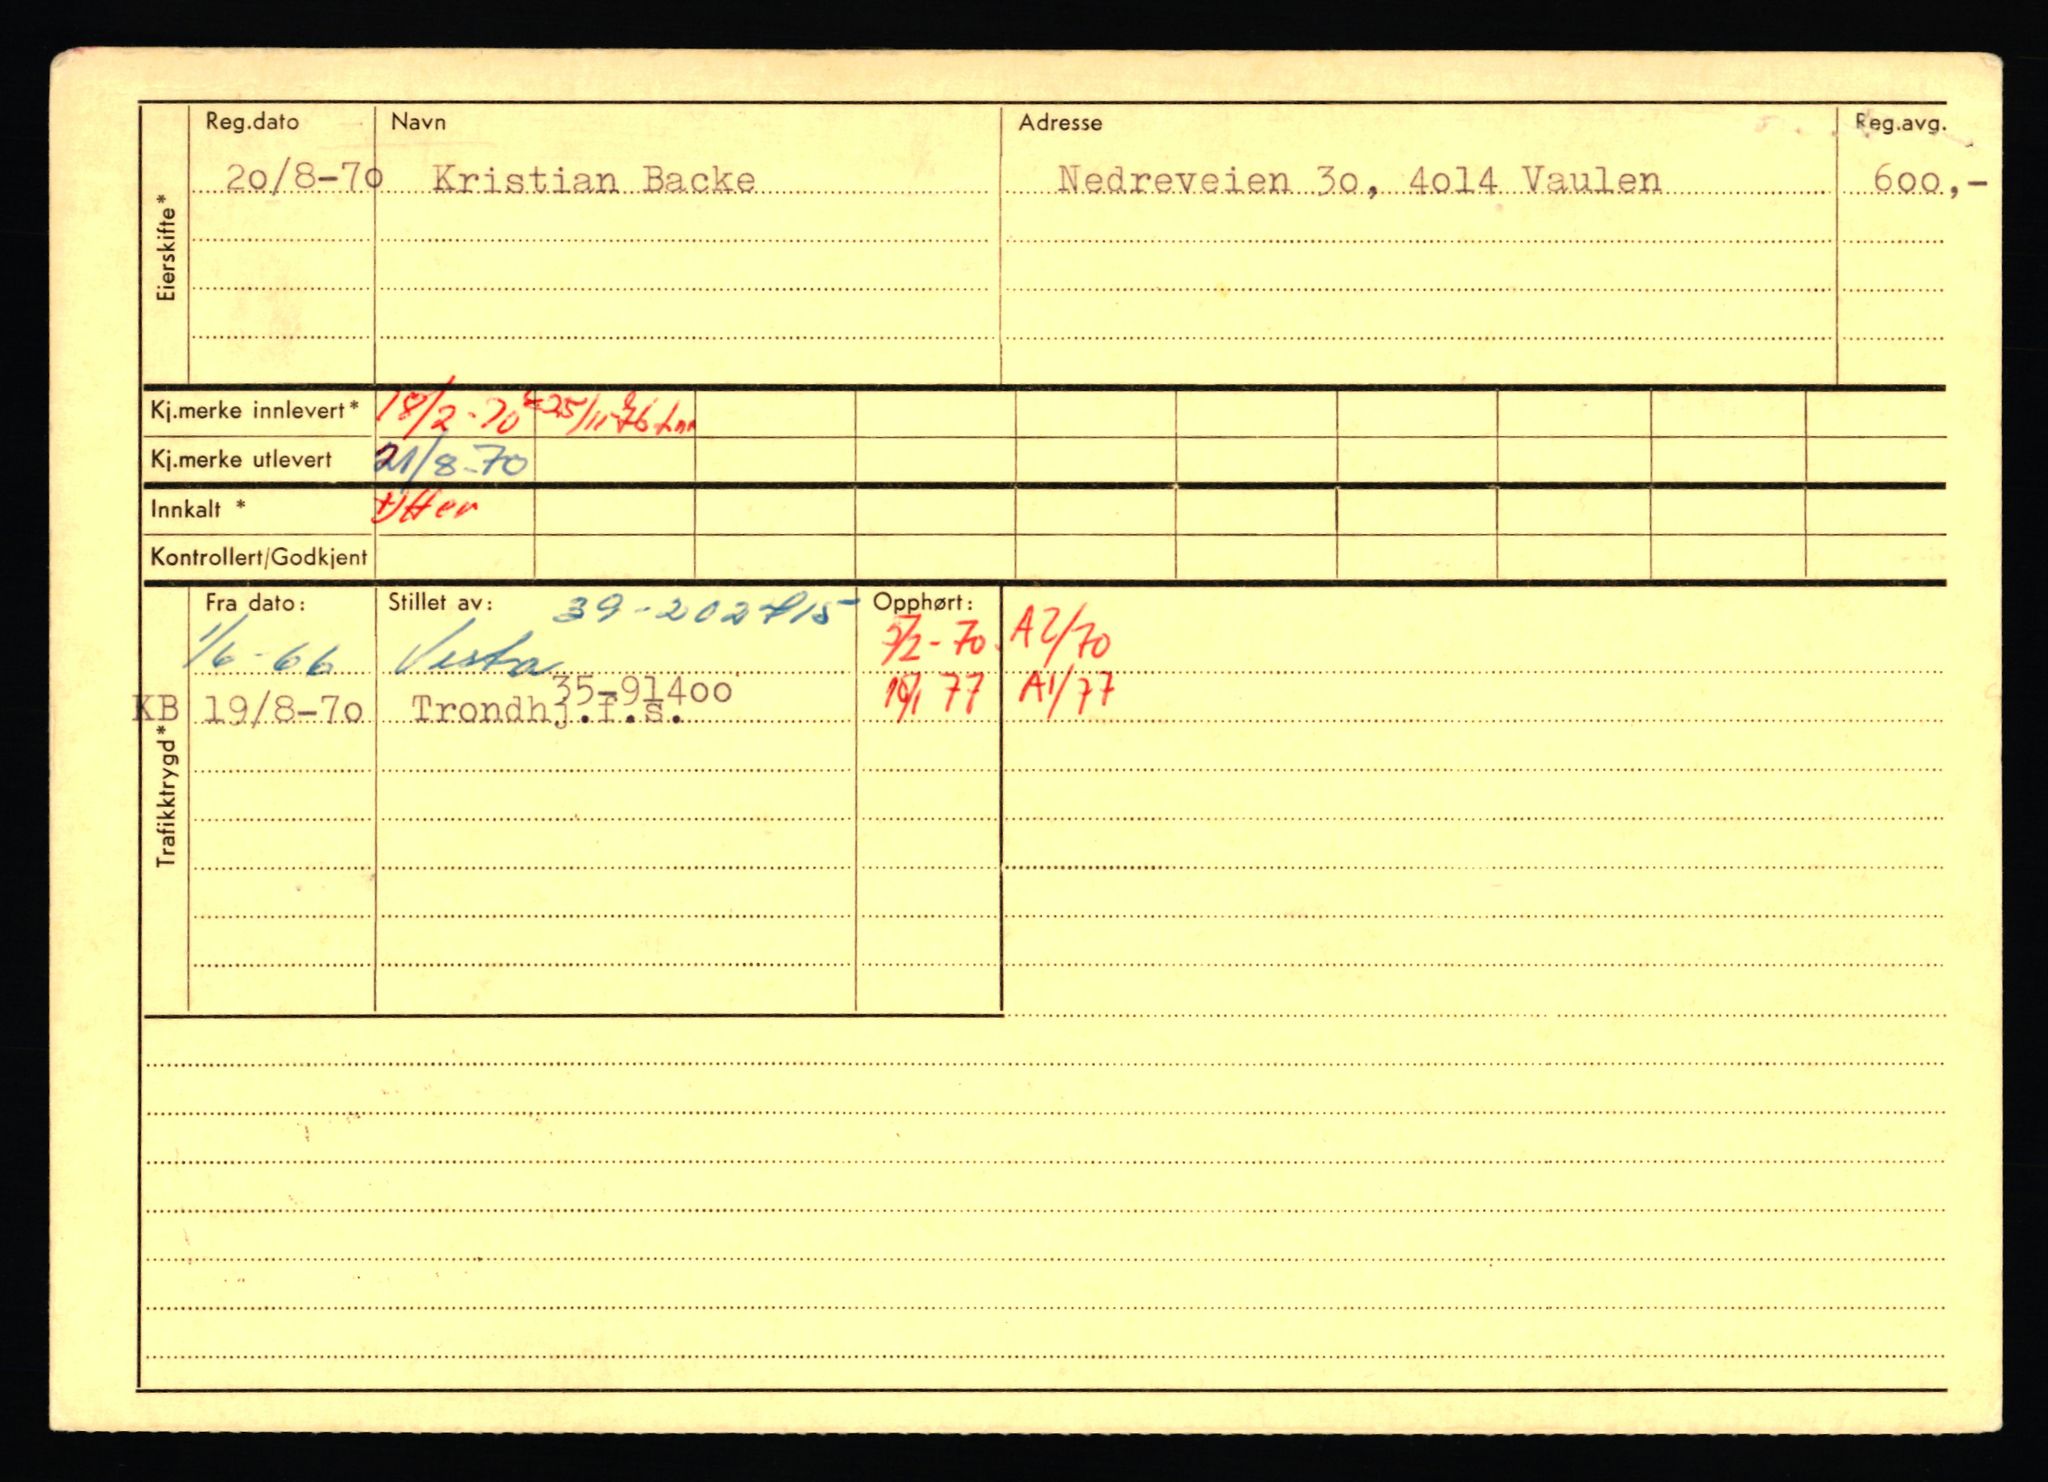 Reg.dato Navn Adresse Reg.avg.
20/8-70 Kristian Backe Nedreveien 30, 4014 Vaulen 600,-
Eierskifte*
Kj.merke innlevert* 18/2-70 25/11-76
Kj.merke utlevert 21/8-70
Innkalt *
Kontrollert/Godkjent
Fra dato: Stillet av: 39-202715 Opphørt:
1/6-66 Vesta 2/2-70. A2/70
35-91400
KB 19/8-70 Trondhj.f.s. 77 A1/77
Trafikktrygd*